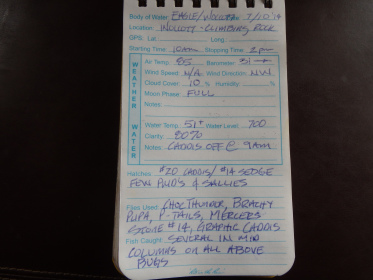 Body of Water: EAGLE/WOLCOTT 7/10/14
Location: WOLCOTT - CLIMBING ROCK
GPS: Lat: Long:
Starting Time: 10am Stopping Time: 2pm
WEATHER
Air Temp: 85 Barometer: 31
Wind Speed: N/A Wind Direction: NW
Cloud Cover: 10 % Humidity: %
Moon Phase: FULL
Notes:
WATER
Water Temp: 51+ Water Level: 700
Clarity: 80%
Notes: CADDIS OFF @ 9AM
Hatches: #20 CADDIS/ #14 SEDGE
FEW PMD'S & SALLIES
Flies Used: CHOC THUNDER, BRACHY
PUPA, P-TAILS, MERCERS
#14, GRAPHIC CADDIS
Fish Caught: SEVERAL IN MID
COLUMNS ON ALL ABOVE
BUGS